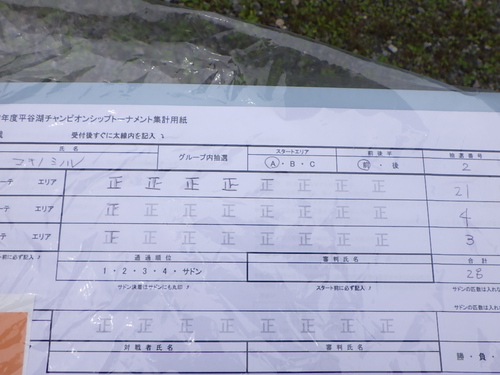 年度平谷湖チャンピオンシップトーナメント集計用紙
受付後すぐに太線内を記入
氏名 グループ内抽選 スタートエリア 前後半 抽選番号
A・B・C 前・後 2
エリア 正 正 正 正 正 正 正 正 21
エリア 正 正 正 正 正 正 正 正 4
エリア 正 正 正 正 正 正 正 正 3
前に必ず記入 通過順位 審判氏名 合計
1・2・3・4・サドン 28
スタート前に必ず記入
正 正 正 正 正 正 正 正
対戦者氏名 審判氏名
勝・負